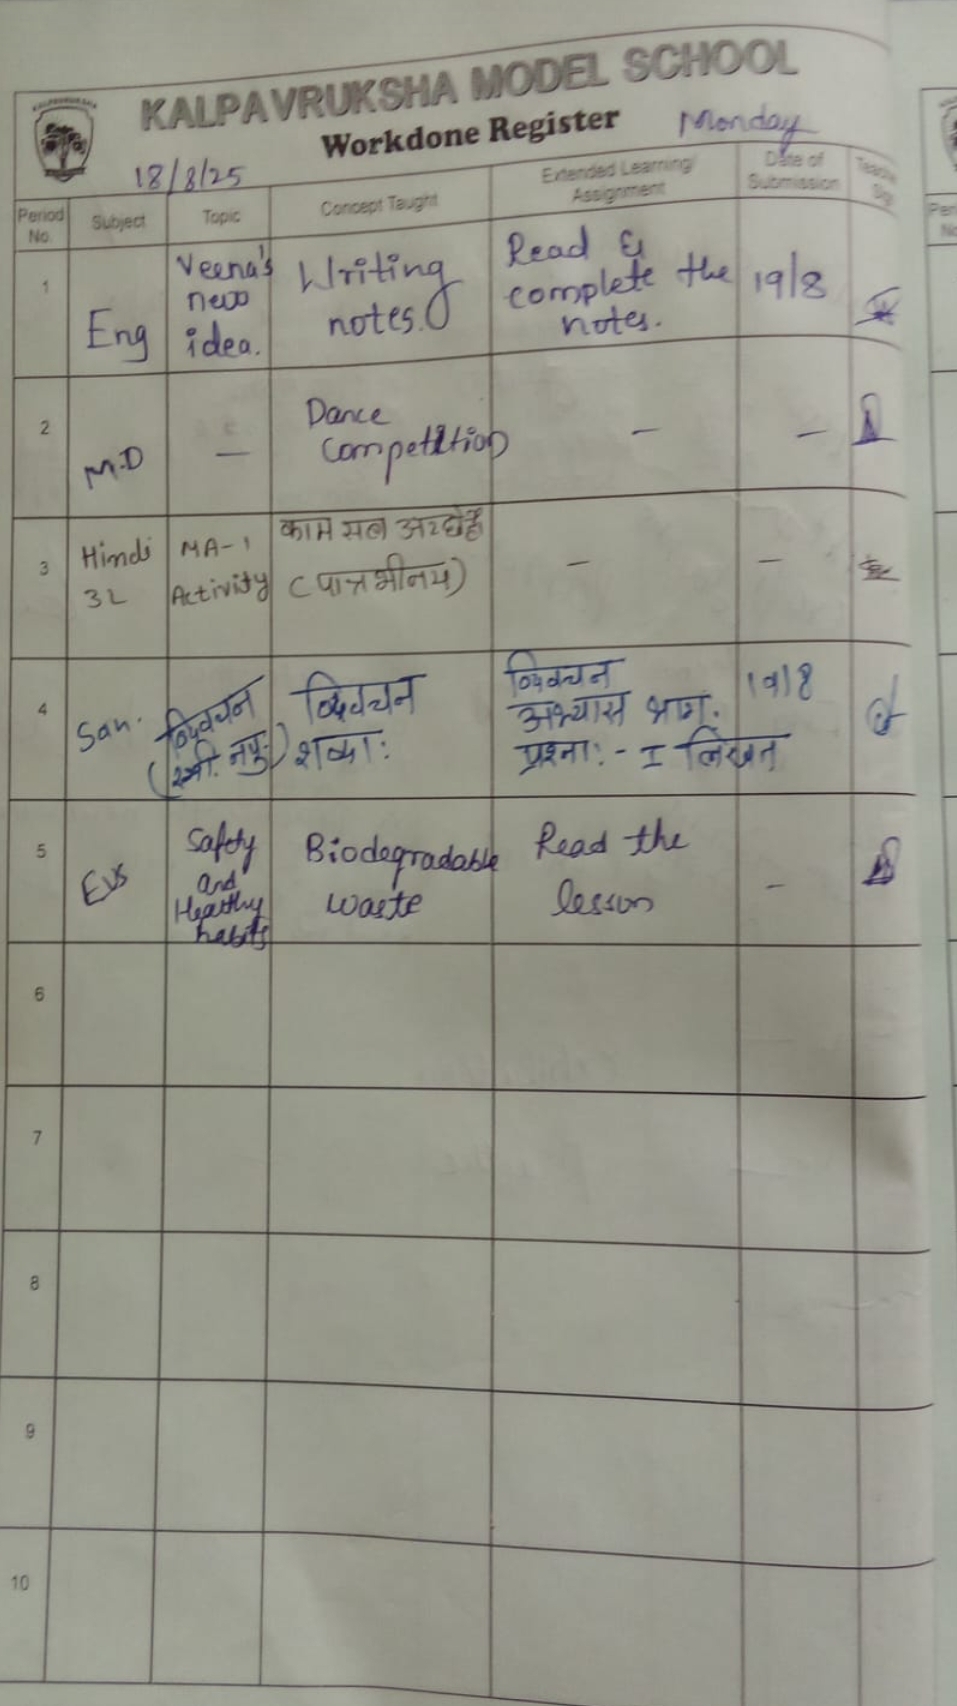 KALPAVRUKSHA MODEL SCHOOL
Workdone Register
Monday
18/8/25
Period No.
Subject
Topic
Concept Taught
Extended Learning/
Assignment
Date of
Submission
1
Eng
Veena's
new
idea.
Writing
notes.
Read &
complete the
notes.
19/8
2
M.D
—
Dance
Competition
—
—
3
Hindi
3L
MA-1
Activity
काम सब अच्छे है
(पात्र
—
—
4
San.
द्विवचन
(स्त्री. नपु.)
द्विवचन
शब्दा:
द्विवचन
अभ्यास भाग.
प्रश्ना: - I लिखत
19/8
5
EVS
Safety
and
Healthy
habits
Biodegradable
waste
Read the
lesson
–
6
7
8
9
10